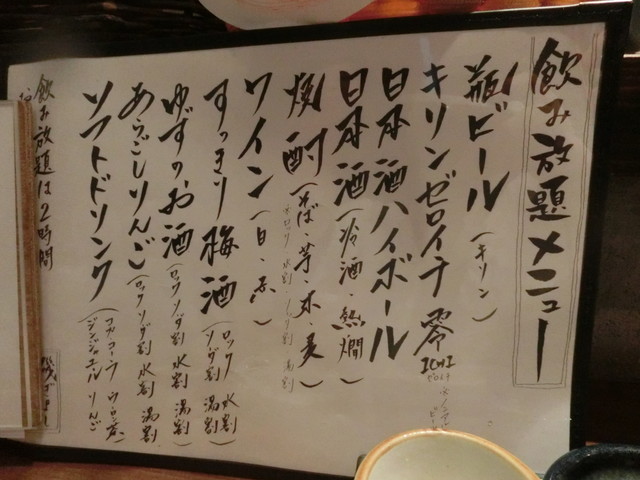 飲み放題メニュー
瓶ビール(キリン)
キリンゼロイチ 零ICHI
日本酒ハイボール
日本酒(冷酒・熱燗)
焼酎(そば・芋・米・麦)
水割 湯割
ワイン(白・赤)
すっきり梅酒(ロック 水割 ソーダ割 湯割)
ゆずのお酒(ロック ソーダ割 水割 湯割)
あらごしりんご(ロック ソーダ割 水割 湯割)
ソフトドリンク(コカコーラ ウーロン茶 ジンジャエール りんご
飲み放題は2時間